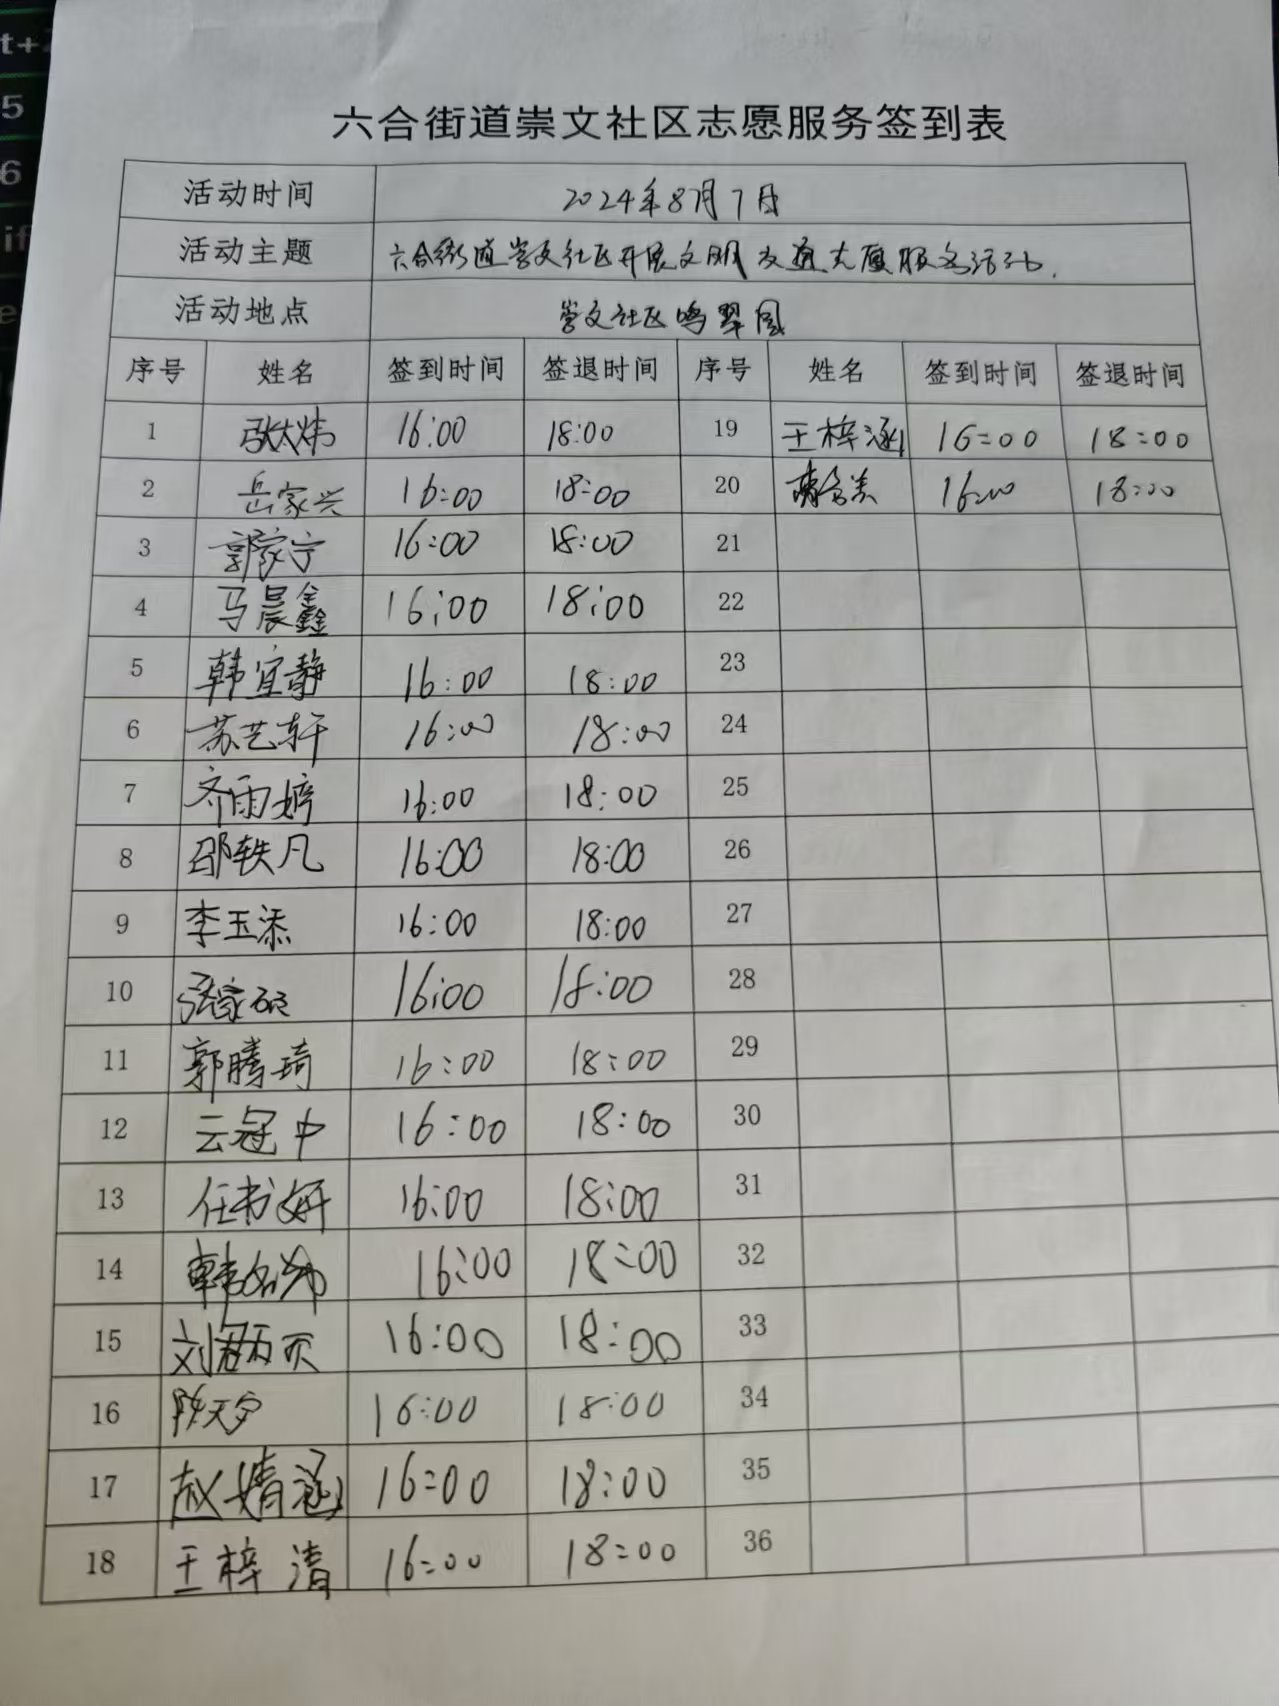 t+2
5
6
if
六合街道崇文社区志愿服务签到表
活动时间 2024年8月7日
活动主题 六合街道崇文社区开展文明交通志愿服务活动.
活动地点 崇文社区鸣翠园
序号 姓名 签到时间 签退时间 序号 姓名 签到时间 签退时间
1 张炜 16:00 18:00 19 王梓涵 16:00 18:00
2 岳家兴 16:00 18:00 20 16:00 18:00
3 郭家宁 16:00 18:00 21
4 马晨鑫 16:00 18:00 22
5 韩宜静 16:00 18:00 23
6 苏艺轩 16:00 18:00 24
7 齐雨婷 16:00 18:00 25
8 邵轶凡 16:00 18:00 26
9 李玉添 16:00 18:00 27
10 张家硕 16:00 18:00 28
11 郭腾琦 16:00 18:00 29
12 云冠中 16:00 18:00 30
13 任书妍 16:00 18:00 31
14 韩 16:00 18:00 32
15 刘 16:00 18:00 33
16 陈天 16:00 18:00 34
17 赵婧涵 16:00 18:00 35
18 王梓清 16:00 18:00 36